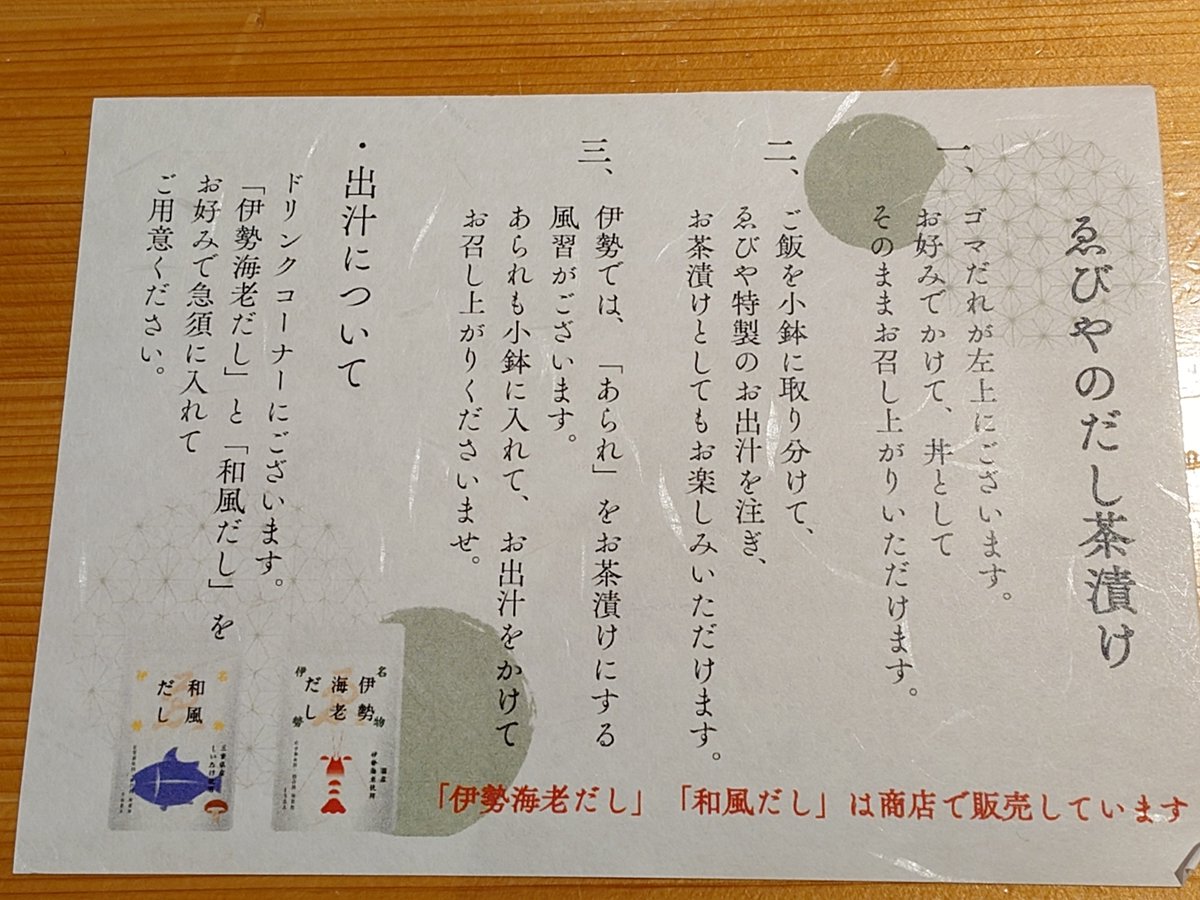 ゑびやのだし茶漬け
一、
ゴマだれが左上にございます。
お好みでかけて、丼として
そのままお召し上がりいただけます。
二、
ご飯を小鉢に取り分けて、
ゑびや特製のお出汁を注ぎ、
お茶漬けとしてもお楽しみいただけます。
三、
伊勢では、「あられ」をお茶漬けにする
風習がございます。
あられも小鉢に入れて、お出汁をかけて
お召し上がりくださいませ。
・出汁について
ドリンクコーナーにございます。
「伊勢海老だし」と「和風だし」を
お好みで急須に入れて
ご用意ください。
名物
伊勢
伊勢
海老
だし
国産
伊勢海老使用
名
伊勢
和風
だし
三重県産
しいたけ使用
「伊勢海老だし」「和風だし」は商店で販売しています